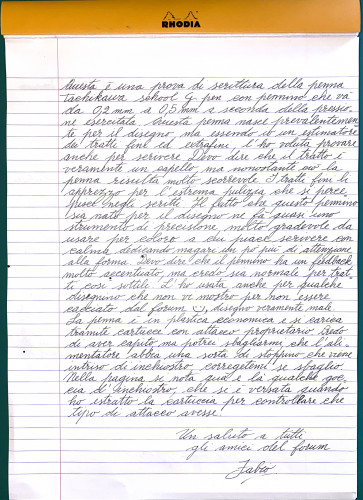 RHODIA
Questa è una prova di scrittura della penna
tachikawa school G pen con pennino che va
da 0,2 mm a 0,5 mm a seconda della pressio-
ne esercitata. Questa penna nasce prevalentemen-
te per il disegno, ma essendo io un estimatore
de' tratti fini ed extrafini, l'ho voluta provare
anche per scrivere. Devo dire che il tratto è
veramente un capello, ma nonostante ciò la
penna risulta molto scorrevole. I tratti fini li
apprezzo per l'estrema pulizia che si perce-
pisce negli scritti. Il fatto che questo pennino
sia nato per il disegno ne fa quasi uno
strumento di precisione, molto gradevole da
usare per coloro a cui piace scrivere con
calma dedicando magari un po' più di attenzione
alla forma. Devo dire che il pennino ha un feedback
molto accentuato, ma credo sia normale per trat-
ti così sottili. L'ho usata anche per qualche
disegnino che non vi mostro per non essere
cacciato dal forum, disegno veramente male.
La penna è in plastica economica e si carica
tramite cartucce con attacco proprietario. Credo
di aver capito, ma potrei sbagliarmi, che l'ali-
mentatore abbia una sorta di stoppino che viene
intriso di inchiostro, correggetemi se sbaglio.
Nella pagina si nota qua e là qualche goc-
cia d'inchiostro, che si è versata quando
ho estratto la cartuccia per controllare che
tipo di attacco avesse!
Un saluto a tutti
gli amici del forum
Fabio